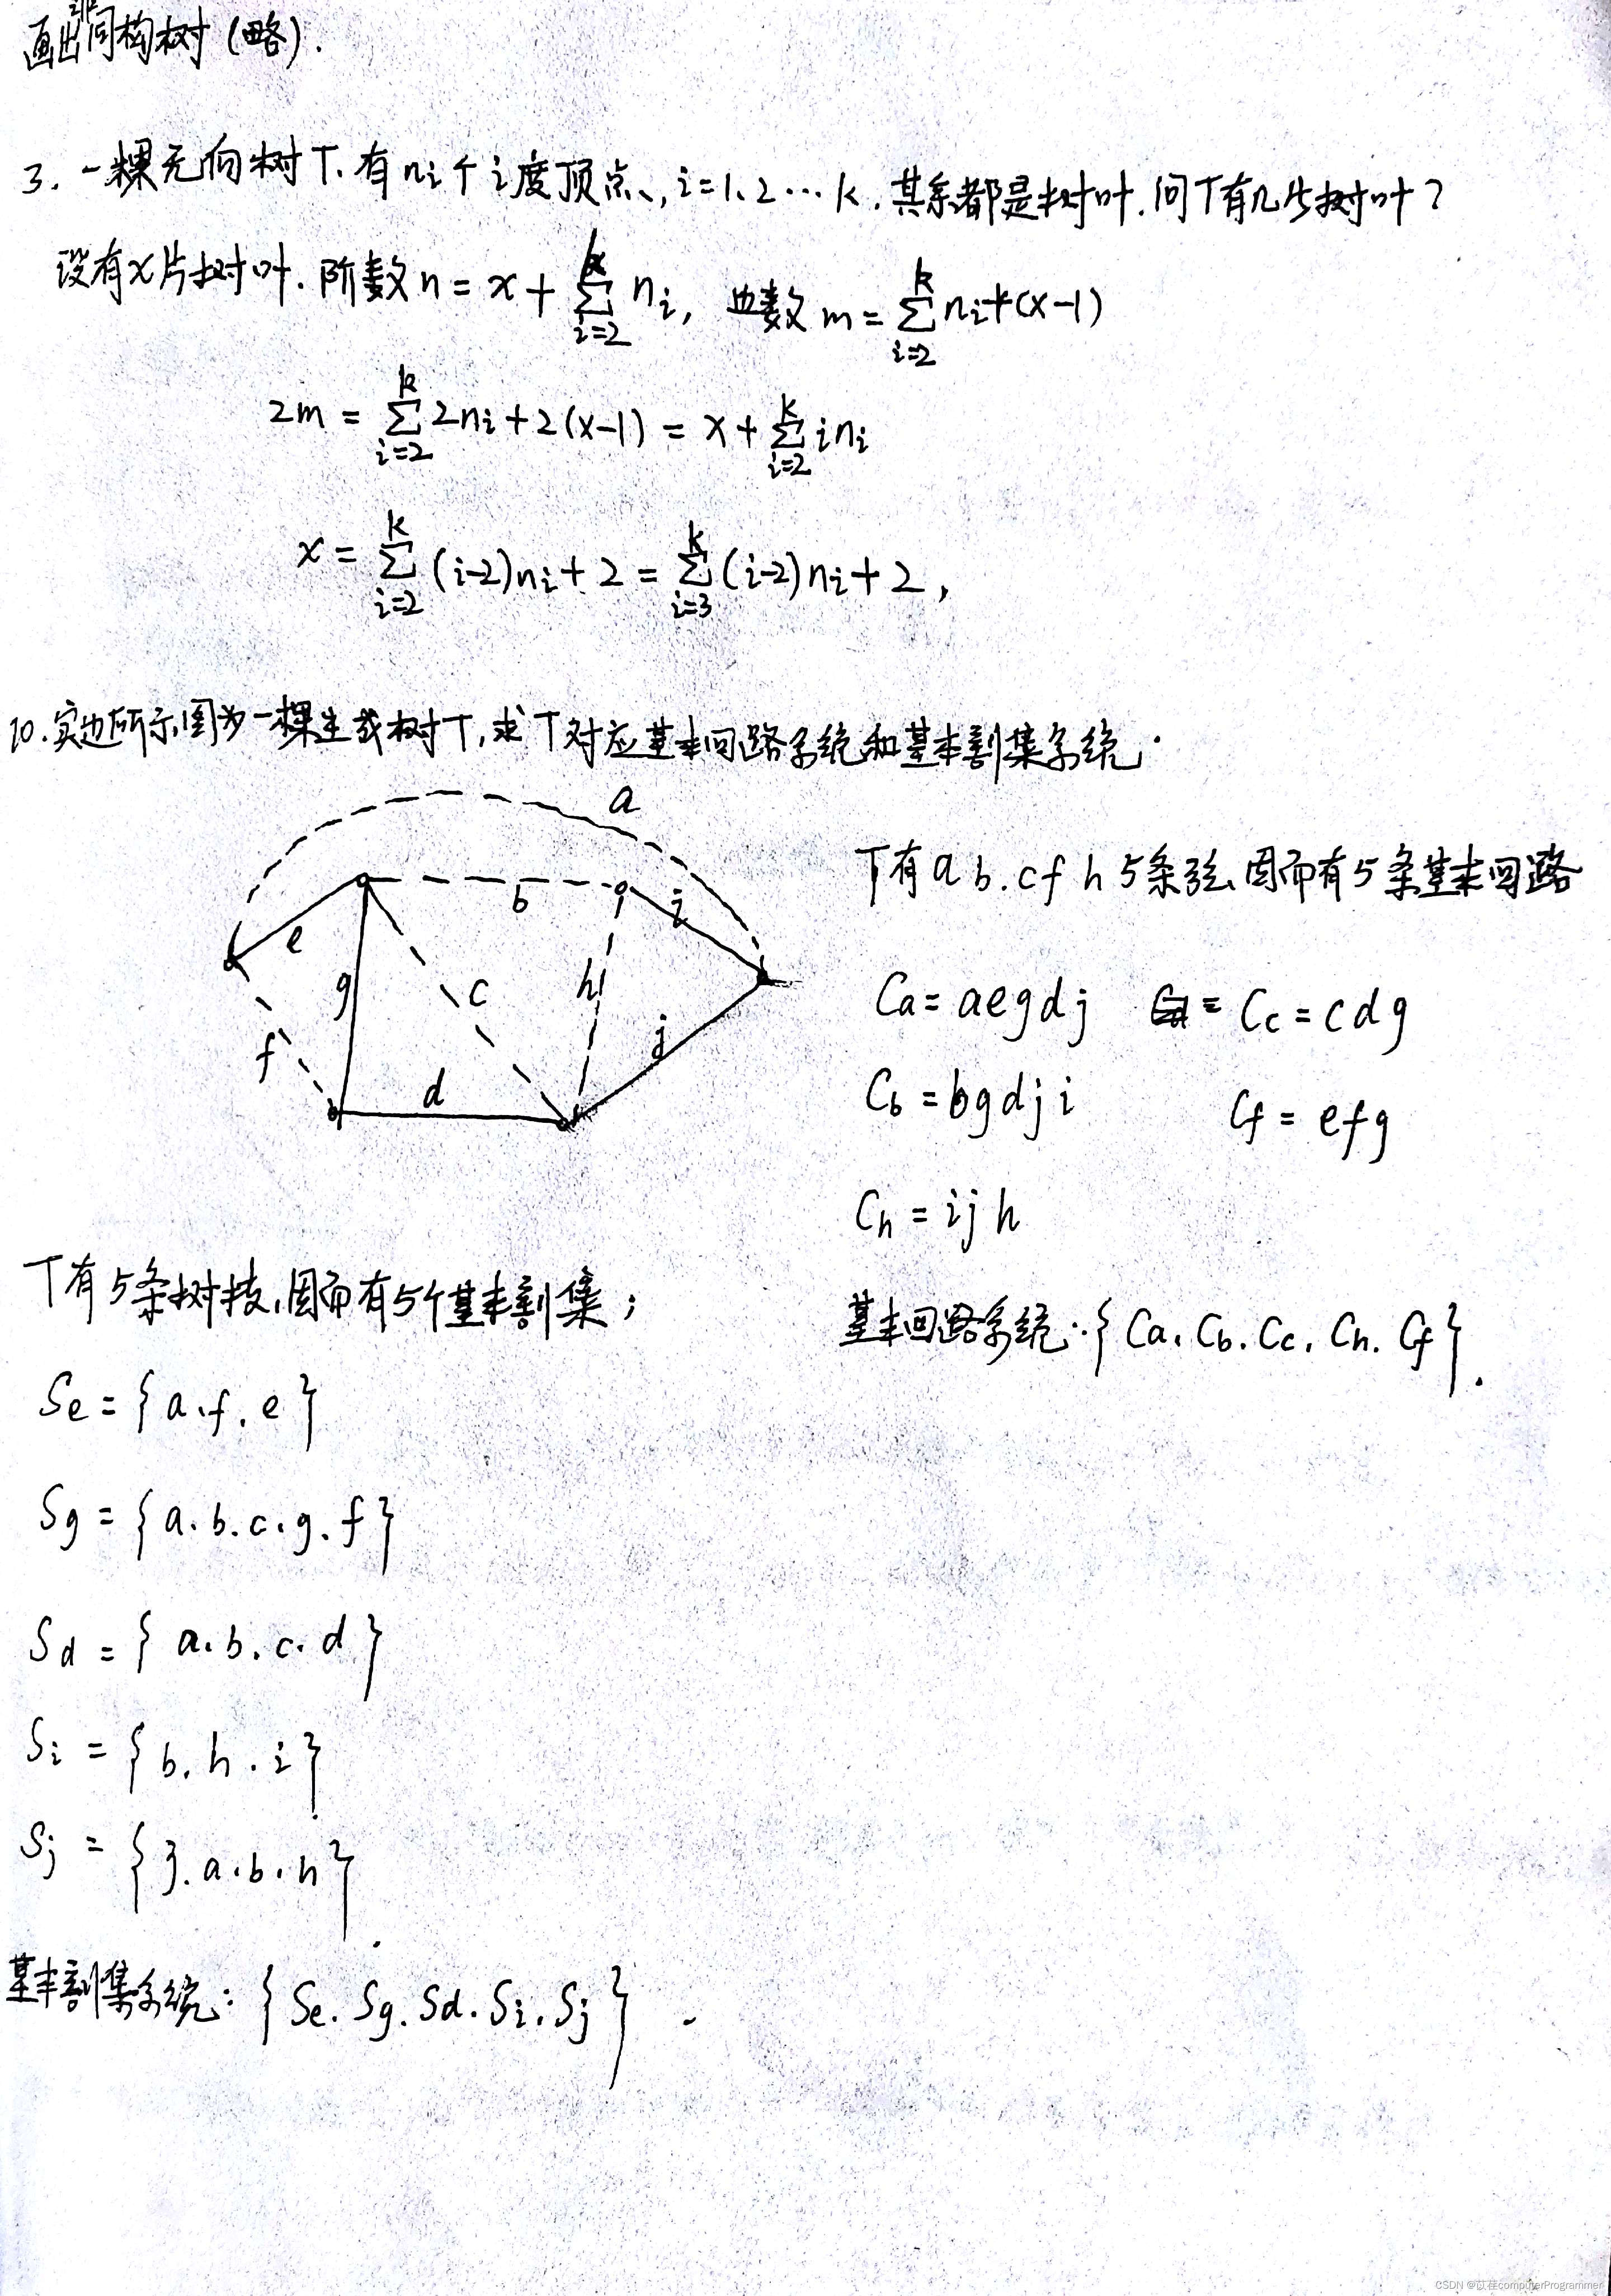 画出非同构树(略).
3. 一棵无向树T.有nᵢ个i度顶点, i=1、2…k.其余都是树叶.问T有几片树叶?
设有x片树叶.阶数n = x + ∑_{i=2}^{k} nᵢ, 边数m = ∑_{i=2}^{k} nᵢ+(x-1)
2m = ∑_{i=2}^{k} 2nᵢ + 2(x-1) = x + ∑_{i=2}^{k} inᵢ
x = ∑_{i=2}^{k} (i-2)nᵢ + 2 = ∑_{i=3}^{k} (i-2)nᵢ + 2,
10.实边所示,图为一棵生成树T,求T对应基本回路系统和基本割集系统.
a
b
i
e
g
c
h
f
j
d
T有a b.c f h 5条弦,因而有5条基本回路
Ca = aegdj  Cc = cdg
Cb = bgdji  Cf = efg
Ch = ijh
基本回路系统:{Ca. Cb. Cc. Ch. Cf}.
T有5条树枝,因而有5个基本割集;
Se = {a.f.e}
Sg = {a.b.c.g.f}
Sd = {a.b.c.d}
Si = {b.h.i}
Sj = {j.a.b.h}.
基本割集系统:{Se.Sg.Sd.Si.Sj}.
CSDN @苡荏computerProgrammer